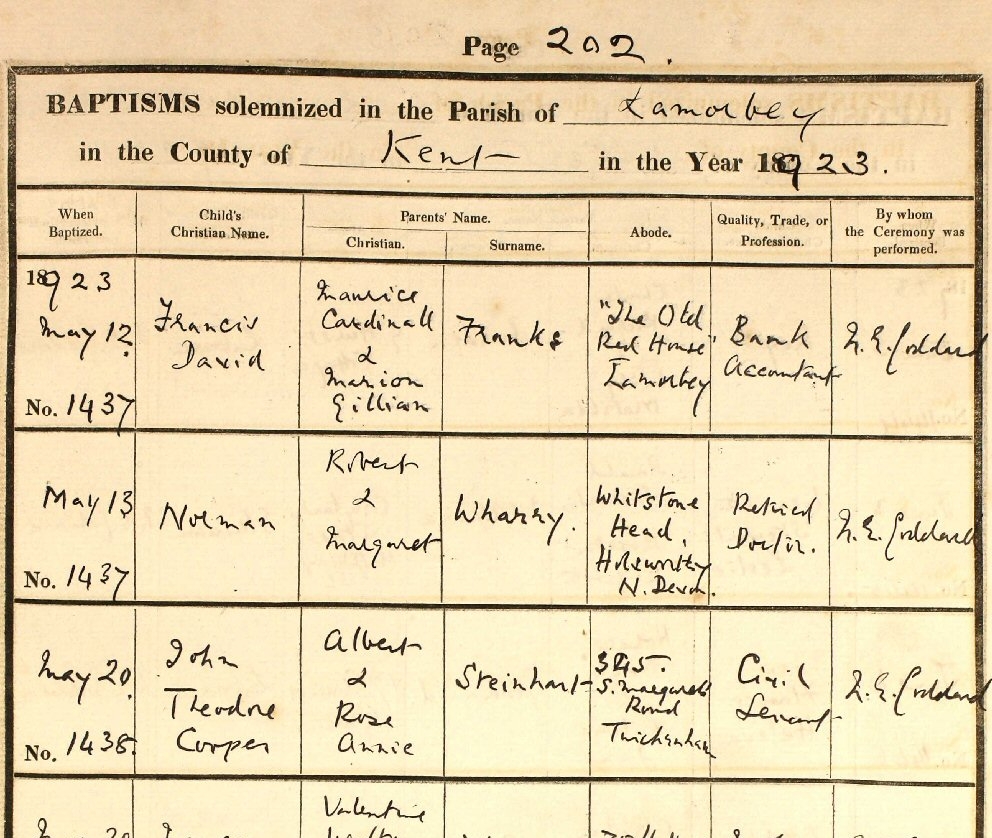 Page 202.
BAPTISMS solemnized in the Parish of Lamorbey
in the County of Kent in the Year 1923.
When Baptized.
Child's Christian Name.
Parents' Name.
Christian.
Surname.
Abode.
Quality, Trade, or Profession.
By whom the Ceremony was performed.
1923
May 12.
No. 1437
Francis
David
Maurice
Cardinall
&
Marion
Gillian
Franks
"The Old
Red House"
Lamorbey
Bank
Accountant
N.E. Goddard
May 13
No. 1437
Norman
Robert
&
Margaret
Wharry.
Whitstone
Head,
Holsworthy
N. Devon.
Retired
Doctor.
N.E. Goddard
May 20.
No. 1438.
John
Theodore
Cooper
Albert
&
Rose
Annie
Steinhart
S. Margarets
Road
Twickenham
Civil
Servant
N.E. Goddard
Valentine